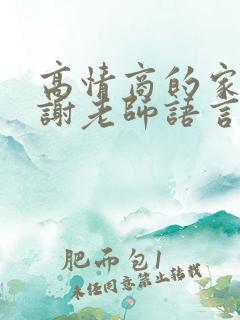 高情商的家
謝老師語言
肥而包1
未经同意禁止转载